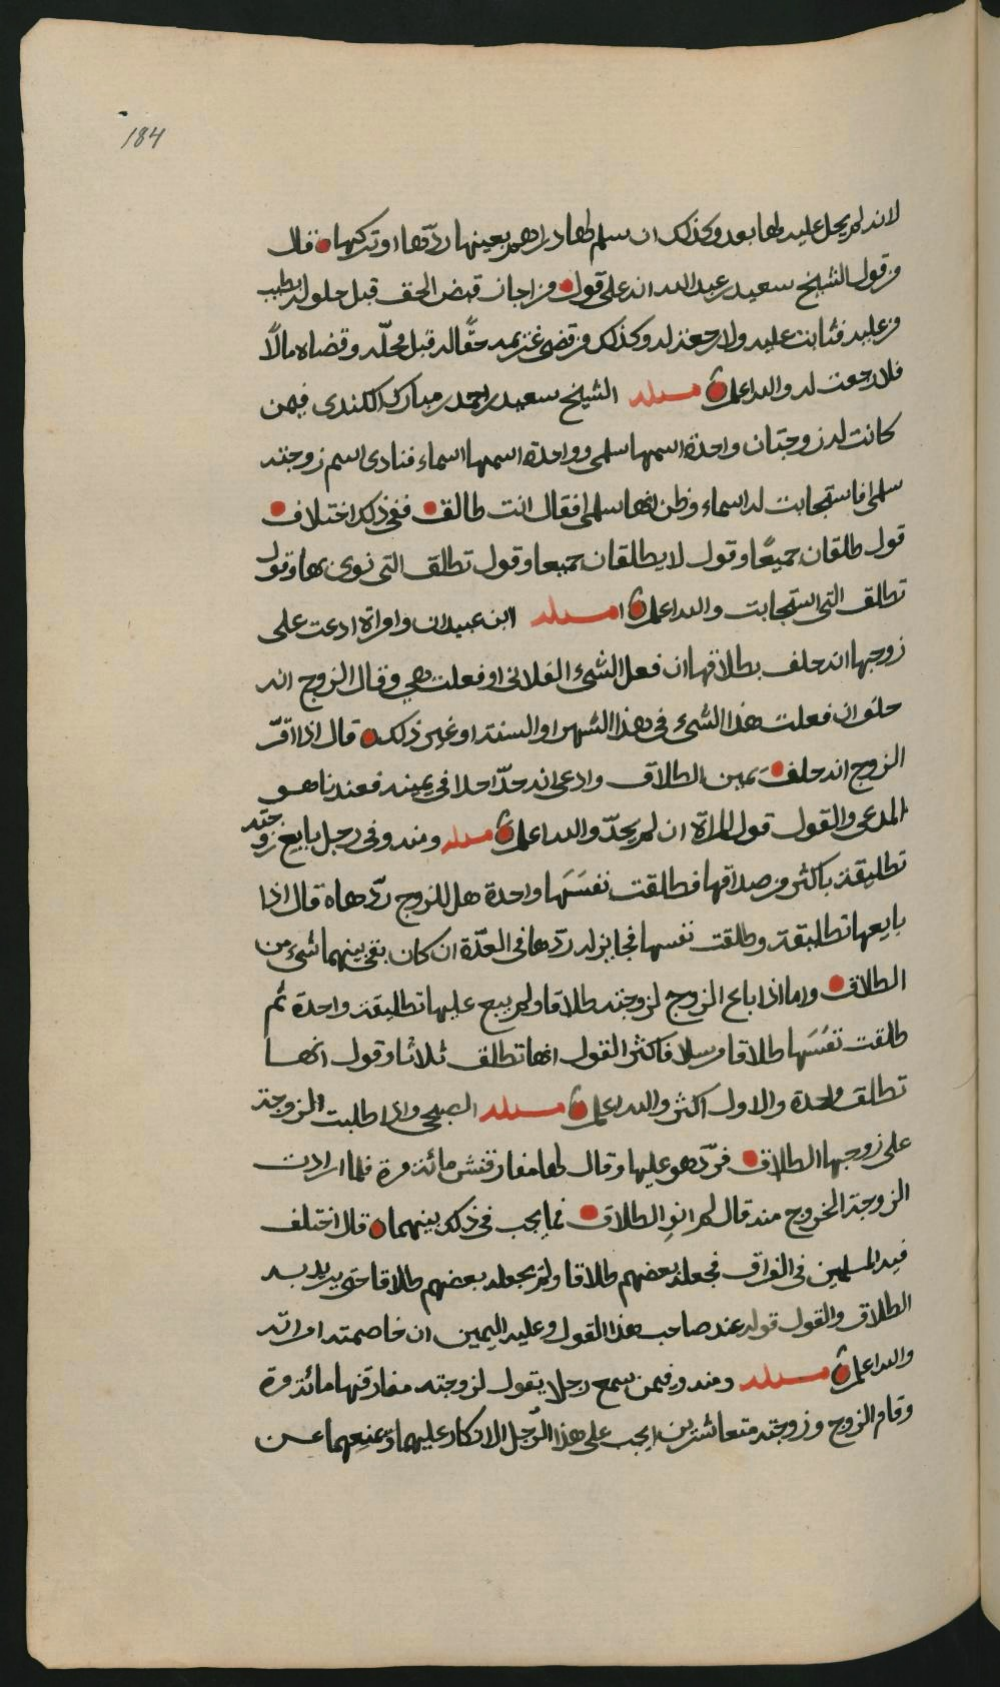 184
لانه لم يحل عليه لها بعد وكذلك ان سلم لها دراهم بعينها ردّتها او تركتها قال
من قول الشيخ سعيد بن عبدالله انه على قول من اجاز قبض الحق قبل حلوله بطيب
من عليه فثابت عليه ولا رجعة له وكذلك من قضى غريمه حقًّا له قبل محلّه وقضاه مالًا
فلا رجعت له والله اعلم مسئله الشيخ سعيد بن احمد بن مبارك الكندى فيمن
كانت له زوجتان واحدة اسمها سلمى وواحدة اسمها اسماء فنادى اسم زوجته
سلمى فاستجابت له اسماء وظن انها سلمى فقال انت طالق ففى ذلك اختلاف
قول طلقان جميعًا وقول لا يطلقان جميعا وقول تطلق التى نوى بها وقول
تطلق التى استجابت والله اعلم مسئله ابن عبيدان وامراة ادعت على
زوجها انه حلف بطلاقها ان فعل الشىء الفلانى او فعلت هي وقال الزوج انه
حلف ان فعلت هذا الشىء فى هذا الشهر او السنة او غير ذلك قال اذا اقرّ
الزوج انه حلف يمين الطلاق وادعى انه حدّ احلا فى يمينه فعندنا هو
المدعى والقول قول المراة ان لم يحدّ والله اعلم مسئله ومنه وفى رجل بايع زوجته
تطليقة باكثر من صداقها فطلقت نفسَها واحدة هل للزوج ردّها قال اذا
بايعها تطليقة وطلقت نفسها فجايز له ردّها فى العدّة ان كان بقى بينهما شىء من
الطلاق واما اذا باع الزوج لزوجته طلاقا ولم يبيع عليها تطليقة واحدة ثم
طلقت نفسَها طلاقا مرسلا فاكثر القول انها تطلق ثلاثا وقول انها
تطلق واحدة والاول اكثر والله اعلم مسئله الصبحى واذا طلبت الزوجة
على زوجها الطلاق فردّ هو عليها وقال لها مفارقتش مائة مرة فلما ارادت
الزوجة الخروج منه قال لم انوِ الطلاق فما يجب فى ذلك بينهما قال اختلف
فيه المسلمين فى الفراق فجعله بعضهم طلاقا ولم يجعله بعضهم طلاقا حتى يريد به
الطلاق والقول قوله عند صاحب هذا القول وعليه اليمين ان خاصمته امراته
والله اعلم مسئله ومنه وفيمن سمع رجلا يقول لزوجته مفارقنها مائة مرة
وقام الزوج وزوجته متعاشرين ايجب على هذا الرّجل الانكار عليهما ويمنعهما عن